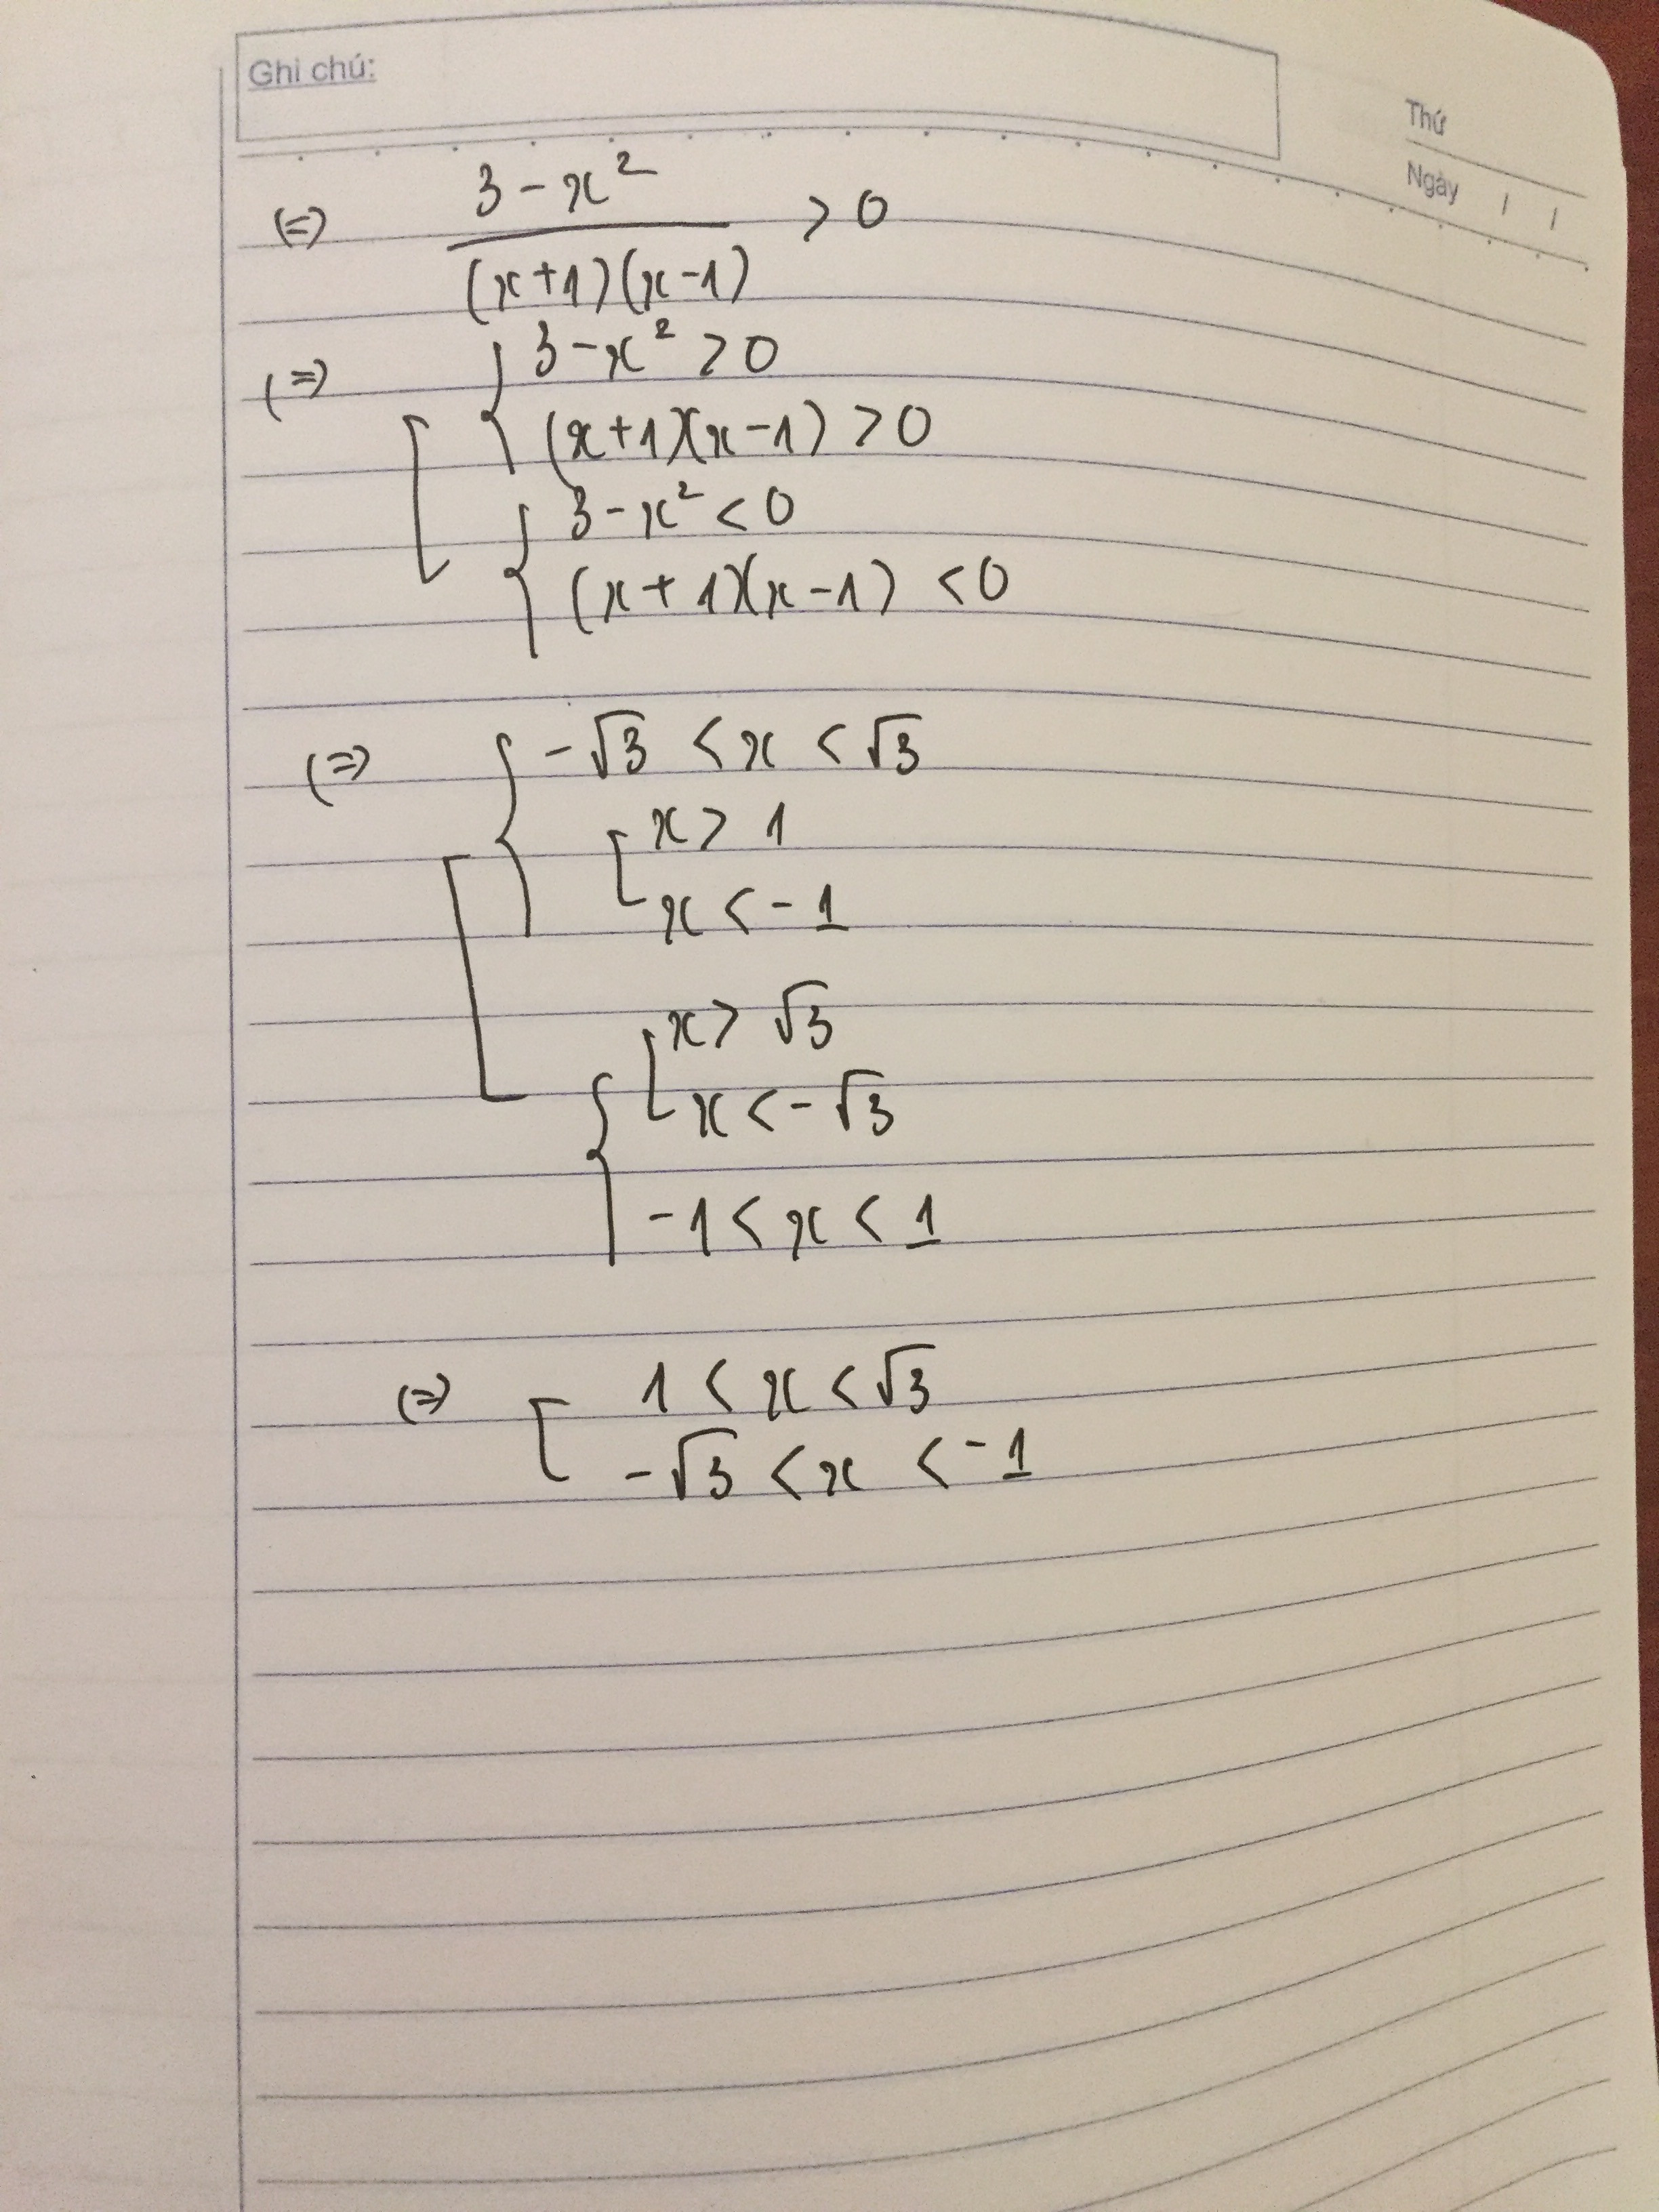 Ghi chú:
Thứ
Ngày / /
(=) 3 - x² / (x+1)(x-1) > 0
(=) [ { 3 - x² > 0
(x+1)(x-1) > 0
{ 3 - x² < 0
(x+1)(x-1) < 0
(=) [ { -√3 < x < √3
[ x > 1
x < -1
{ [ x > √3
x < -√3
-1 < x < 1
(=) [ 1 < x < √3
-√3 < x < -1